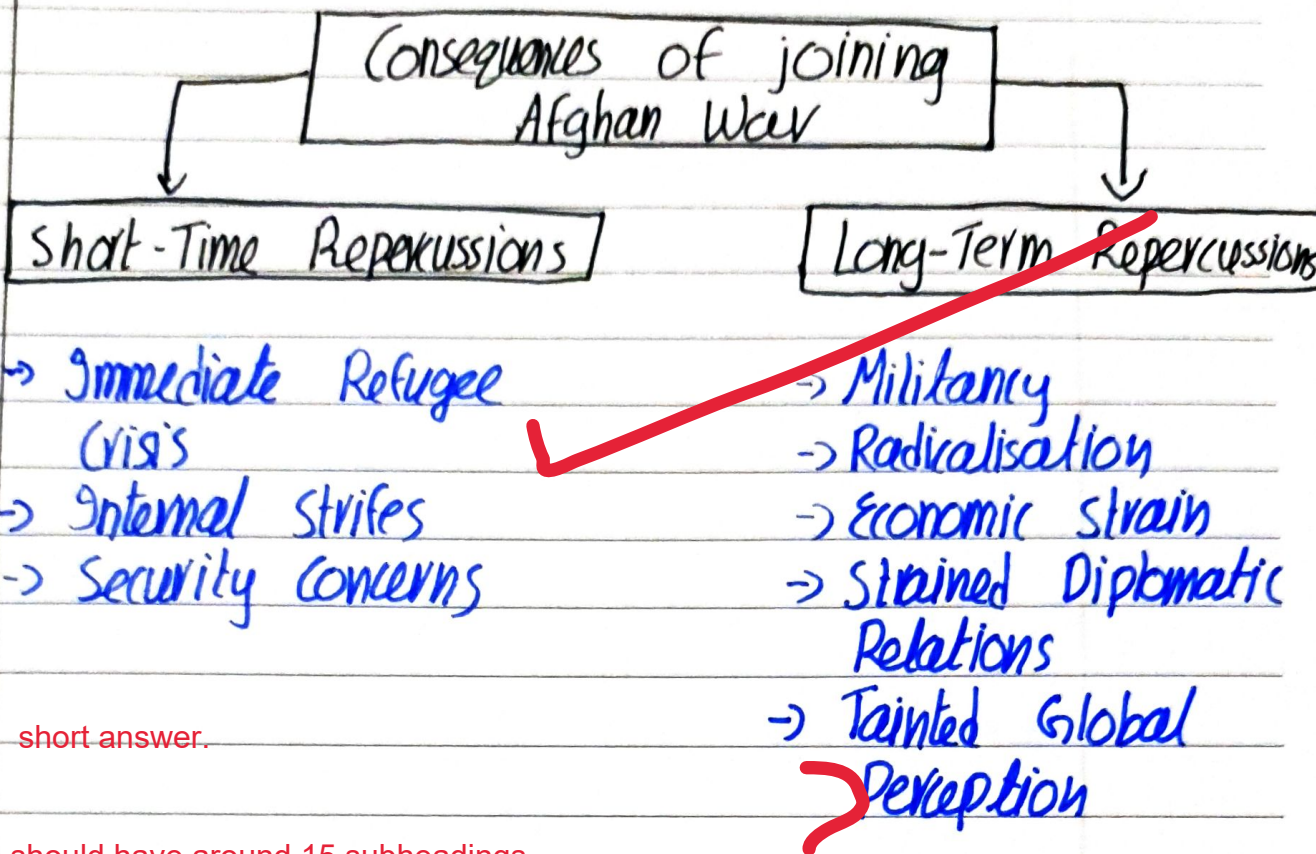 Consequences of joining
Afghan War
Short-Time Repercussions
Long-Term Repercussions
→ Immediate Refugee
Crisis
→ Internal Strifes
→ Security Concerns
→ Militancy
→ Radicalisation
→ Economic Strain
→ Strained Diplomatic
Relations
→ Tainted Global
Perception
short answer.
should have around 15 subheadings